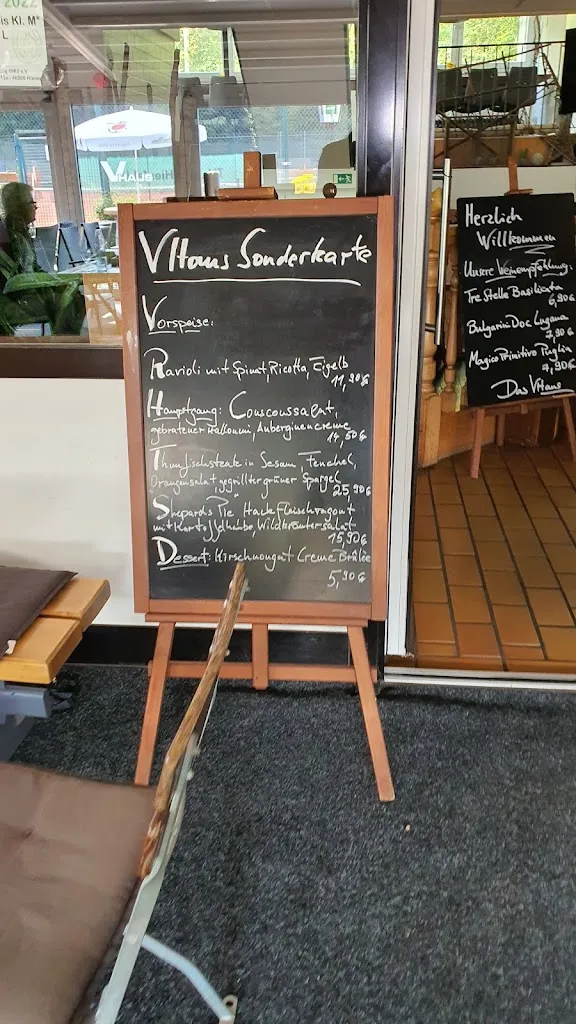 2022
VHaus Sonderkarte
Vorspeise:
Ravioli mit Spinat, Ricotta, Eigelb
11,90€
Hauptgang: Couscoussalat,
gebratener Halloumi, Auberginencreme
14,50€
Thunfischsteak in Sesam, Fenchel,
Orangensalat, gegrillter grüner Spargel
25,90€
"Shepards Pie" Hackfleischragout
mit Kartoffelhaube, Wildkräutersalat
15,90€
Dessert: Kirschnougat Creme Brûlée
5,90€
Herzlich
Willkommen
Unsere Weinempfehlung:
Tre Stelle Basilicata
6,90€
Bulgarini Doc Lugana
7,90€
Magico Primitivo Puglia
7,90€
Das VHaus